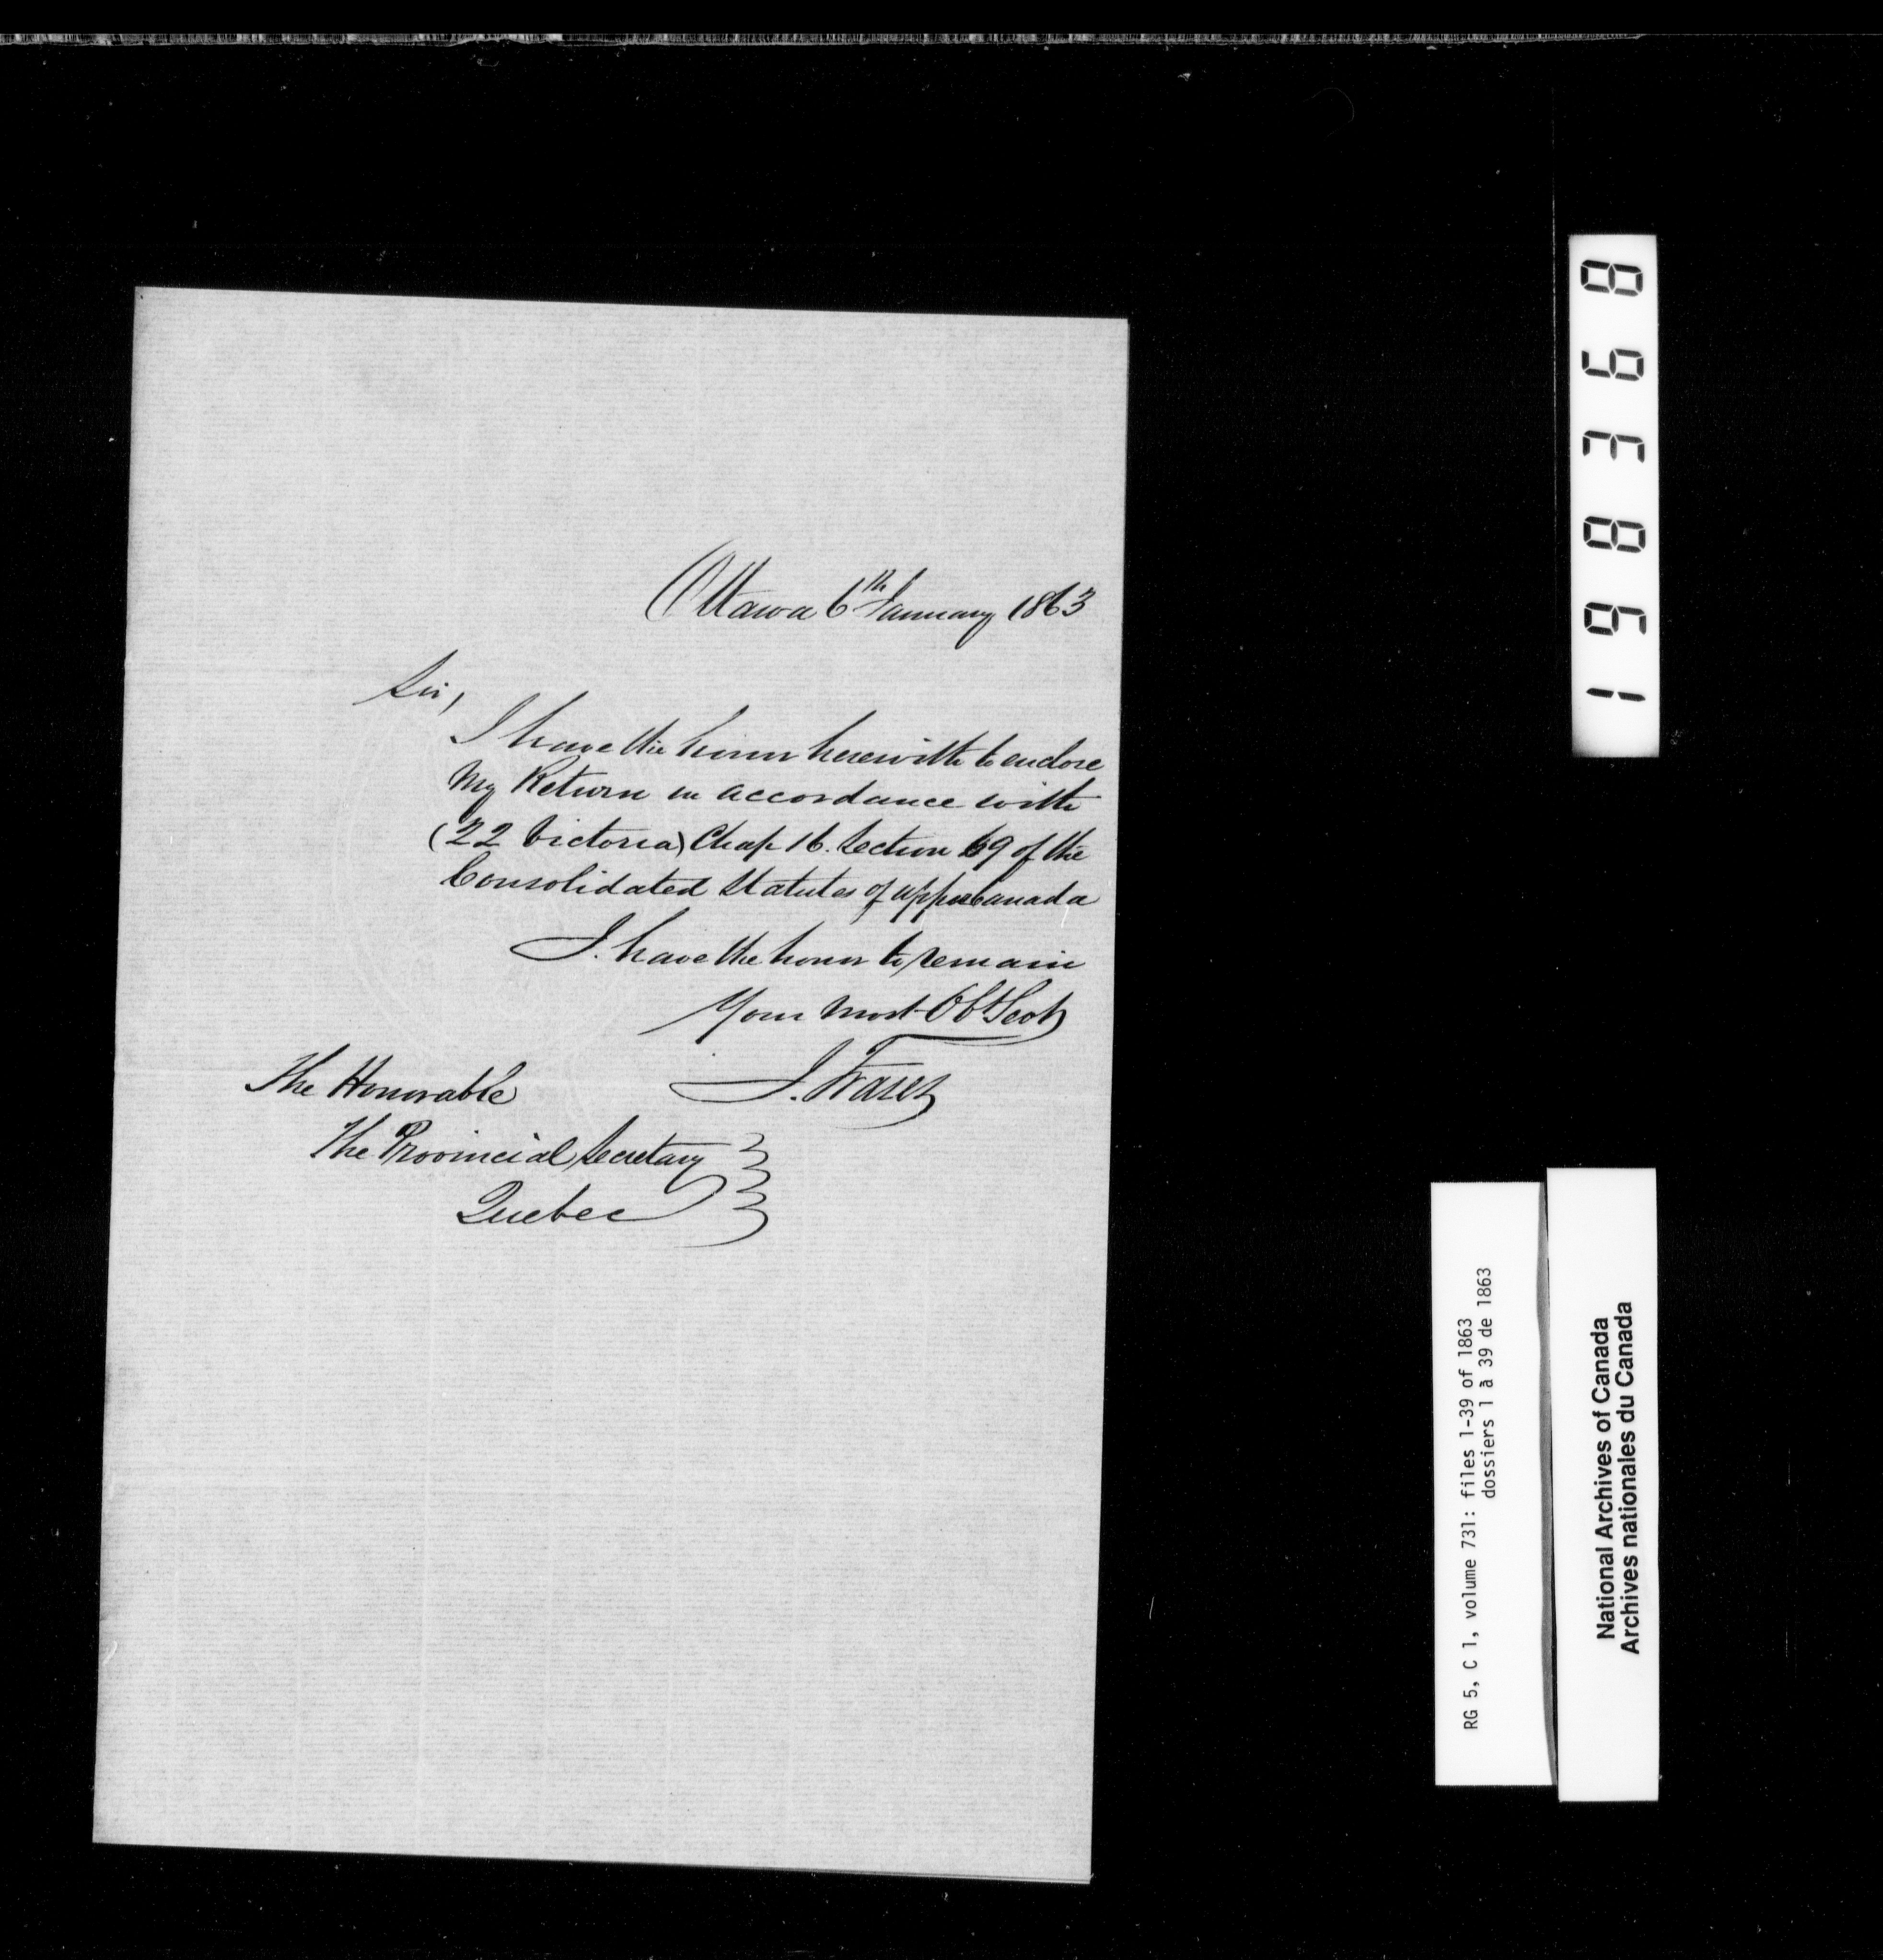 Ottawa 6th January 1863
Sir,
I have the honor herewith to enclose
My Return in accordance with
(22 Victoria) Chap 16. Section 69 of the
Consolidated Statutes of Upper Canada
I. have the honor to remain
Your most Obt Sevt
J. Fraser
The Honorable
The Provincial Secretary
Quebec
198368
RG 5, C 1, volume 731: files 1-39 of 1863
dossiers 1 à 39 de 1863
National Archives of Canada
Archives nationales du Canada